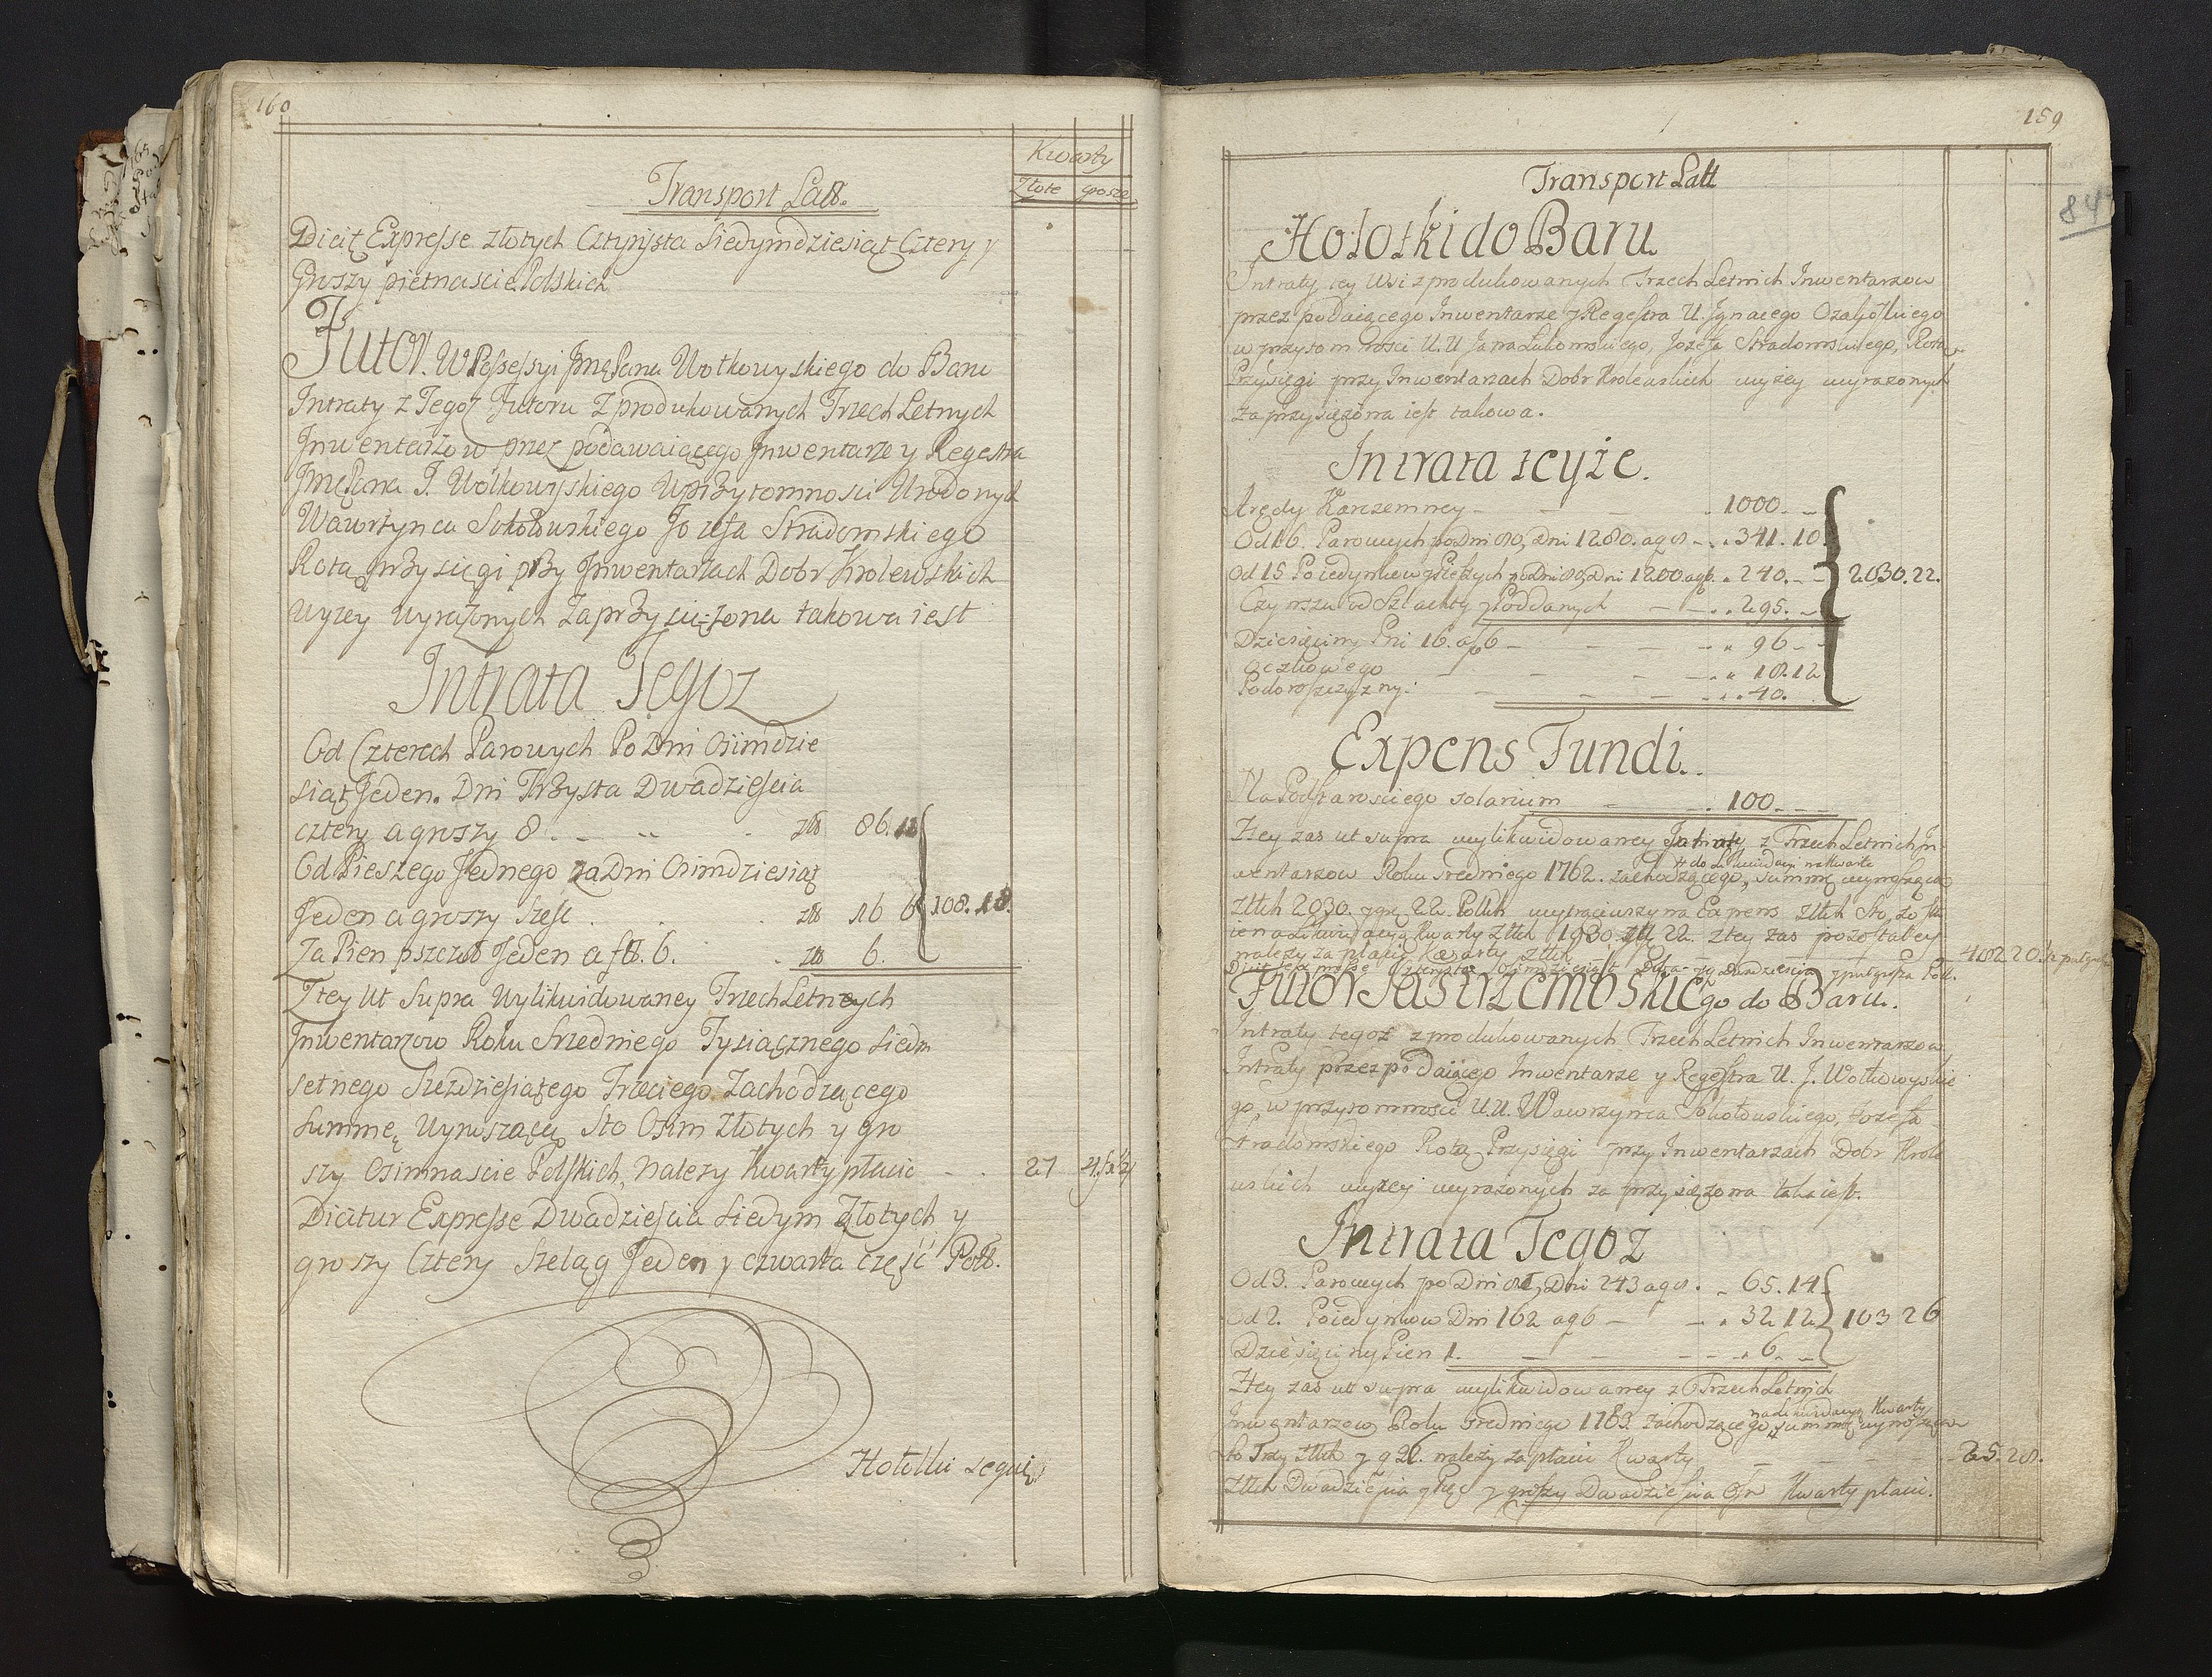 160
Kwarty
Transport Latt.
Złote grosze
Dicit Expresse złotych Cztyrysta Siedymdziesiąt Cztery y
Groszy piętnascie Polskich
Futor. W Possessyi Jmć Pana Wołkowyskiego do Baru
Intraty z Tegoż Futoru z produkowanych Trzech Letnych
Inwentarzow przez podawaiącego Inwentarze y Regestra
Jmć Pana J. Wołkowyskiego w przytomnosci Urodonych
Wawrzynca Sokołowskiego Jozefa Stradomskiego
Rotą przysięgi przy Inwentarzach Dobr Krolewskich
wyzey wyrazonych zaprzysiężona takowa iest
Intrata Tegoz
Od Czterech Parowych Po Dni Osimdzie
siąt Jeden. Dni Trzysta Dwadziescia
cztery a groszy 8. zł 86. 12
Od Pieszego Jednego za Dni Osimdziesiąt
Jeden a groszy szesc . zł 16 6 108. 18.
Za Pien pszczoł Jeden a fl. 6. zł 6.
Z tey Ut Supra Wylikwidowaney Trzech Letnych
Inwentarzow Roku Srzedniego Tysiącznego Siedm
setnego Szezdziesiątego Trzeciego Zachodzącego
Summę Wynoszącą Sto Osim Złotych y gro
szy Osimnascie Polskich, nalezy kwarty płacic - . 27 4.
Dicitur Expresse Dwadziescia Siedym Złotych y
groszy Cztery Szeląg Jeden y czwarta część Poll.
Hołotki sequit
159
84
Transport Latt
Hołotki do Baru
Intraty tey Wsi z produkowanych Trzech Letnich Inwentarzow
przez podaiącego Inwentarze y Regestra U. Ignacego
w przytomnosci U. U Jana Lukomskiego, Jozefa Stradomskiego, Rotą
Przysięgi przy Inwentarzach Dobr Krolewskich wyzey wyrazonych
zaprzysięzona iest takowa.
Intrata teyże.
Arędy Karczemney - - - . 1000. - -
Od 16. Parowych po Dni 80, Dni 1280. ag 8 - . 341. 10.
Od 15 Poiedynkow pieszych po Dni 80, Dni 1200 ag 6. . 240. - - 2030. 22.
Czynszu od Szlachty y Poddanych - - . . 295. -
Dziesięciny Pni 16. af 6 - - - - . 96 - -
Oczkowego - - - - . . 18. 12
Podoroszczyzny. - - - . . 40.
Expens Fundi.
Na Podstarosciego solarium - - . 100. - -
Z tey zas ut supra wylikwidowaney Intraty z Trzech Letnich In
# do Likwidacyi na kwartę
wentarzow Roku sredniego 1762. zachodzącego, summę wynoszącą
Złłch 2030. y gr 22. Pollch wytrąciwszy na Expens Złłch Sto, zosta
ie na Likwidacyą Kwarty Złłch 1930. gr 22. z tey zas pozostałey
nalezy zapłacic Kwarty złłch 482 20
Dwa gr dwadziescia y puł grosza Poll.
Futor Jastrzembskiego do Baru.
Intraty tegoż z produkowanych Trzech Letnich Inwentarzow
Intraty przez podaiącego Inwentarze y Regestra U. J. Wołkowyskie
go, w przytomnosci U. U. Wawrzynca Sokołowskiego, Jozefa
Stradomskiego Rotą Przysięgi przy Inwentarzach Dobr Krole
wskich wyzey wyrazonych zaprzysięzona taka iest.
Intrata Tegoz
Od 3. Parowych po Dni 81, Dni 243 ag 8. . 65. 14
Od 2. Poiedynkow Dni 162 ag 6 - - . 32 12 103 26
Dziesięciny Pien 1. - - - . 6. -
Z tey zas ut supra wylikwidowaney z Trzech Letnich
na Likwidacyą Kwarty
Inwentarzow Roku sredniego 1763. zachodzącego, summę wynoszącą
sto Trzy złłch y g 26. nalezy zapłacic Kwarty - - - 25. 28.
złłch Dwadziescia y Pięc y groszy Dwadziescia Osm Kwarty płacic.